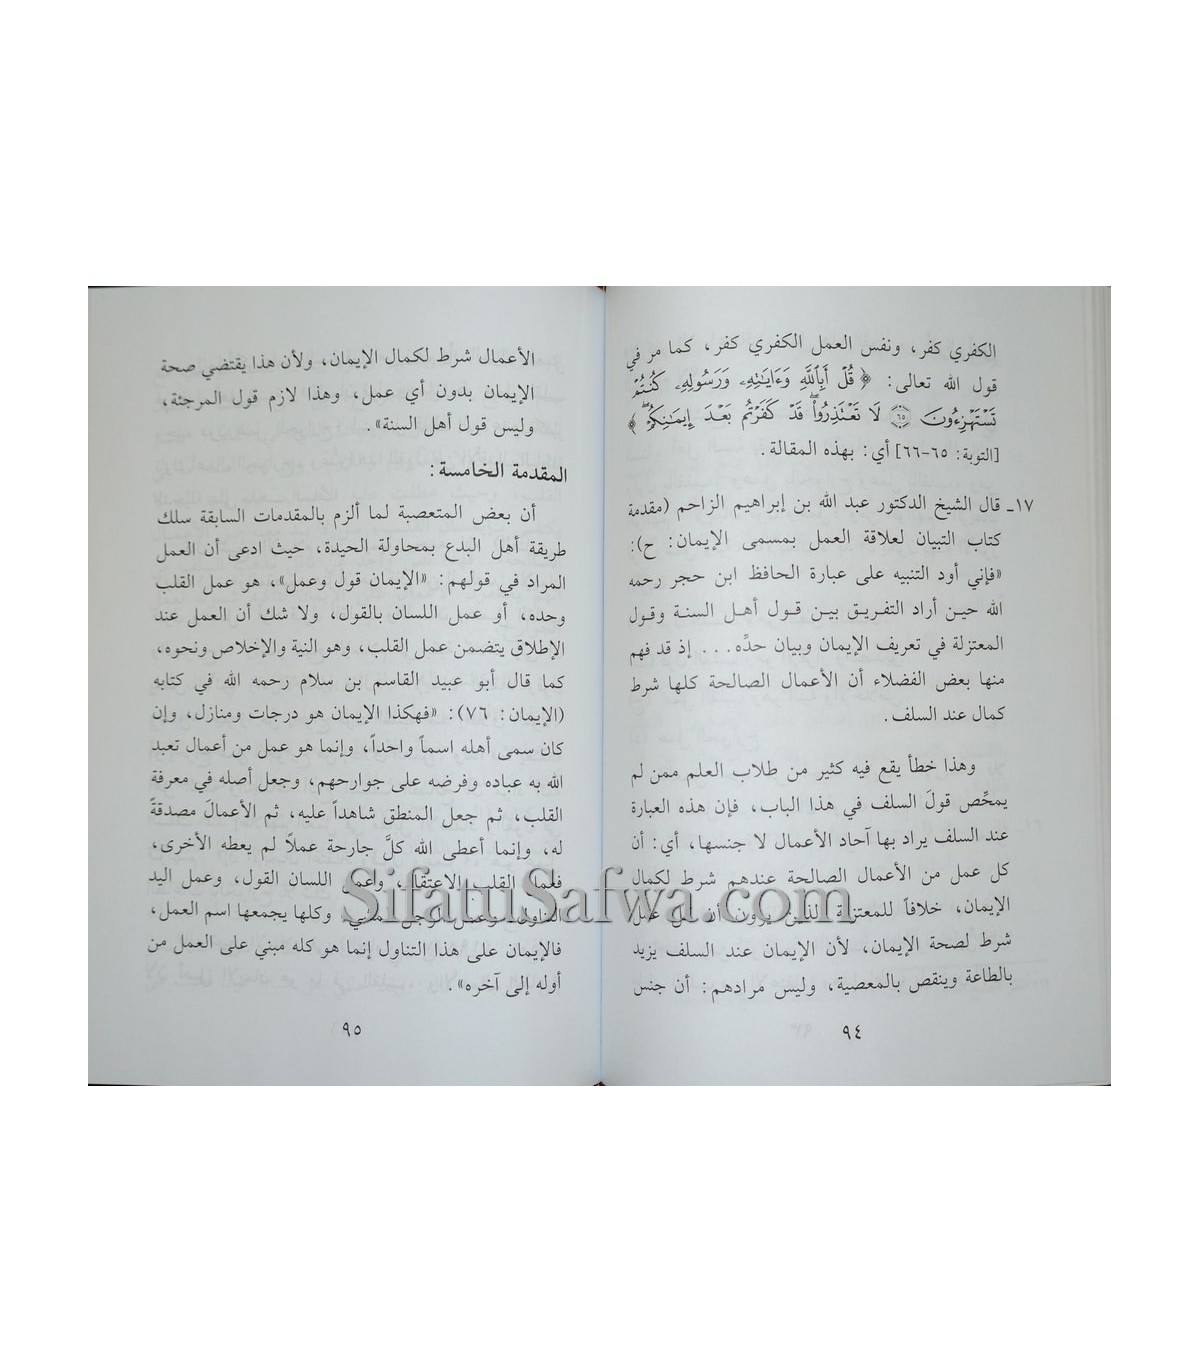 الكفري كفر، ونفس العمل الكفري كفر، كما مر في
قول الله تعالى: ﴿ قُلۡ أَبِٱللَّهِ وَءَايَٰتِهِۦ وَرَسُولِهِۦ كُنتُمۡ
تَسۡتَهۡزِءُونَ ٦٥ لَا تَعۡتَذِرُواْۖ قَدۡ كَفَرۡتُم بَعۡدَ إِيمَٰنِكُمۡۖ ﴾
[التوبة: ٦٥-٦٦] أي: بهذه المقالة.
١٧ـ قال الشيخ الدكتور عبد الله بن إبراهيم الزاحم (مقدمة
كتاب التبيان لعلاقة العمل بمسمى الإيمان: ح):
«فإني أود التنبيه على عبارة الحافظ ابن حجر رحمه
الله حين أراد التفريق بين قول أهل السنة وقول
المعتزلة في تعريف الإيمان وبيان حدِّه... إذ قد فهم
منها بعض الفضلاء أن الأعمال الصالحة كلها شرط
كمال عند السلف.
وهذا خطأ يقع فيه كثير من طلاب العلم ممن لم
يمحِّص قولَ السلف في هذا الباب، فإن هذه العبارة
عند السلف يراد بها آحاد الأعمال لا جنسها، أي: أن
كل عمل من الأعمال الصالحة عندهم شرط لكمال
الإيمان، خلافاً للمعتزلة الذين يرون أن كل عمل
شرط لصحة الإيمان، لأن الإيمان عند السلف يزيد
بالطاعة وينقص بالمعصية، وليس مرادهم: أن جنس
٩٤
الأعمال شرط لكمال الإيمان، ولأن هذا يقتضي صحة
الإيمان بدون أي عمل، وهذا لازم قول المرجئة،
وليس قول أهل السنة».
المقدمة الخامسة:
أن بعض المتعصبة لما ألزم بالمقدمات السابقة سلك
طريقة أهل البدع بمحاولة الحيدة، حيث ادعى أن العمل
المراد في قولهم: «الإيمان قول وعمل»، هو عمل القلب
وحده، أو عمل اللسان بالقول، ولا شك أن العمل عند
الإطلاق يتضمن عمل القلب، وهو النية والإخلاص ونحوه،
كما قال أبو عبيد القاسم بن سلام رحمه الله في كتابه
(الإيمان: ٧٦): «فهكذا الإيمان هو درجات ومنازل، وإن
كان سمى أهله اسماً واحداً، وإنما هو عمل من أعمال تعبد
الله به عباده وفرضه على جوارحهم، وجعل أصله في معرفة
القلب، ثم جعل المنطق شاهداً عليه، ثم الأعمالَ مصدقةً
له، وإنما أعطى الله كلَّ جارحة عملاً لم يعطه الأخرى،
فعمل القلب الاعتقاد، وعمل اللسان القول، وعمل اليد
التناول، وعمل الرجل المشي، وكلها يجمعها اسم العمل،
فالإيمان على هذا التناول إنما هو كله مبني على العمل من
أوله إلى آخره».
٩٥
SifatuSafwa.com